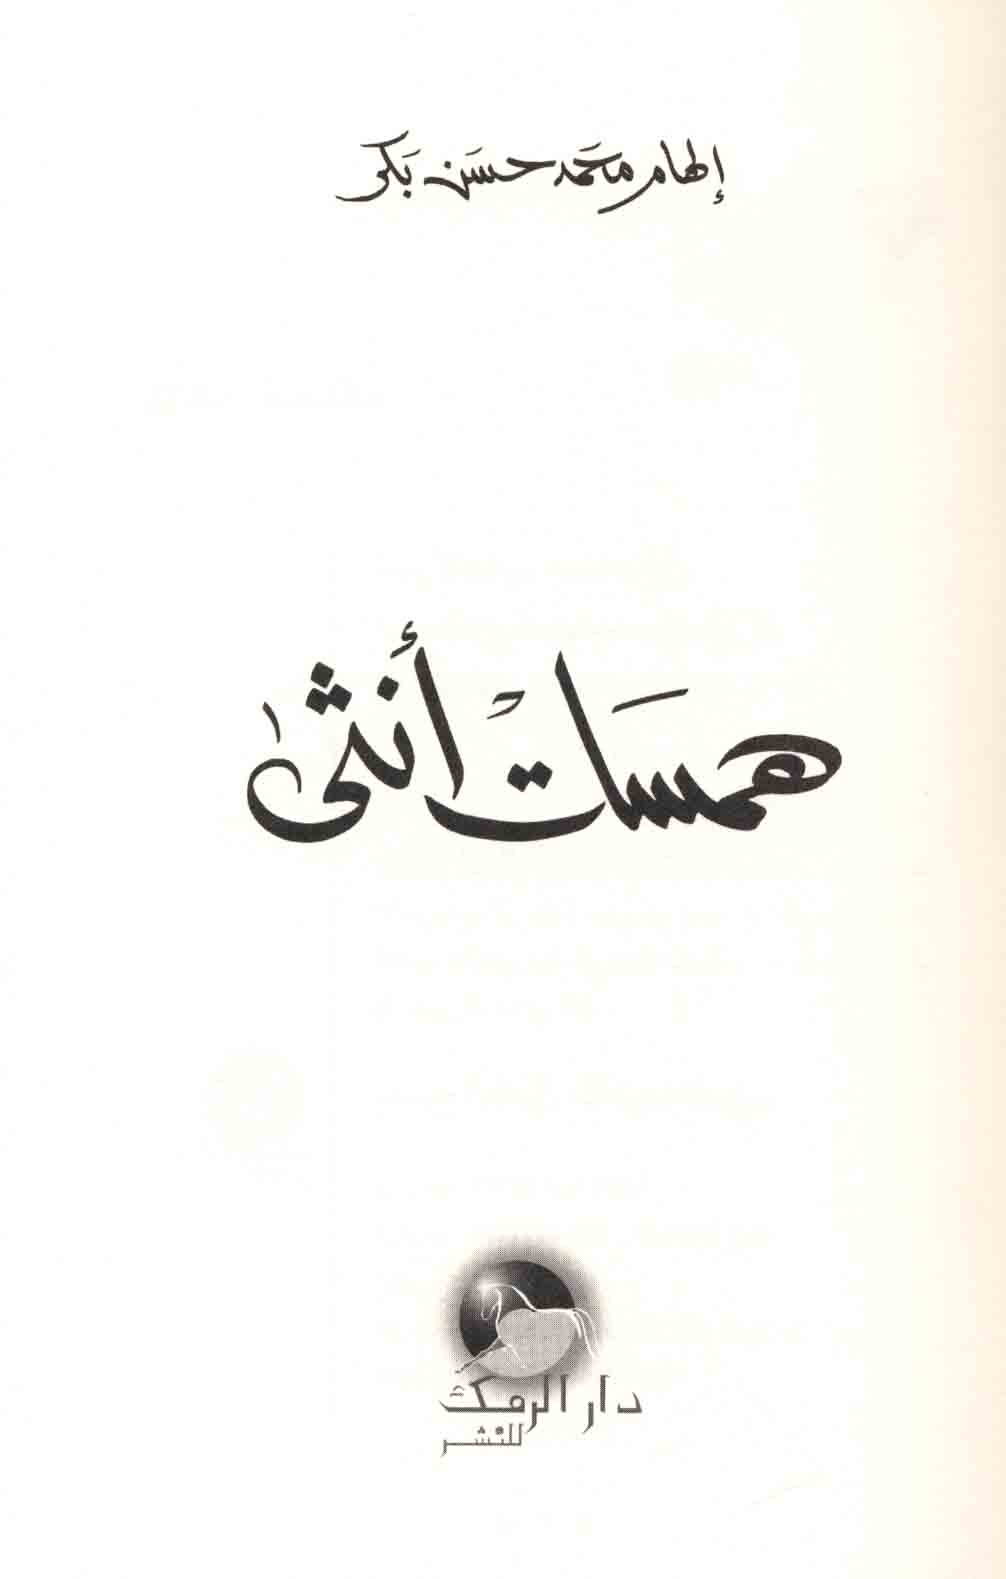 إلهام محمد حسن بكر
همسات أنثى
دار الرمك
للنشر